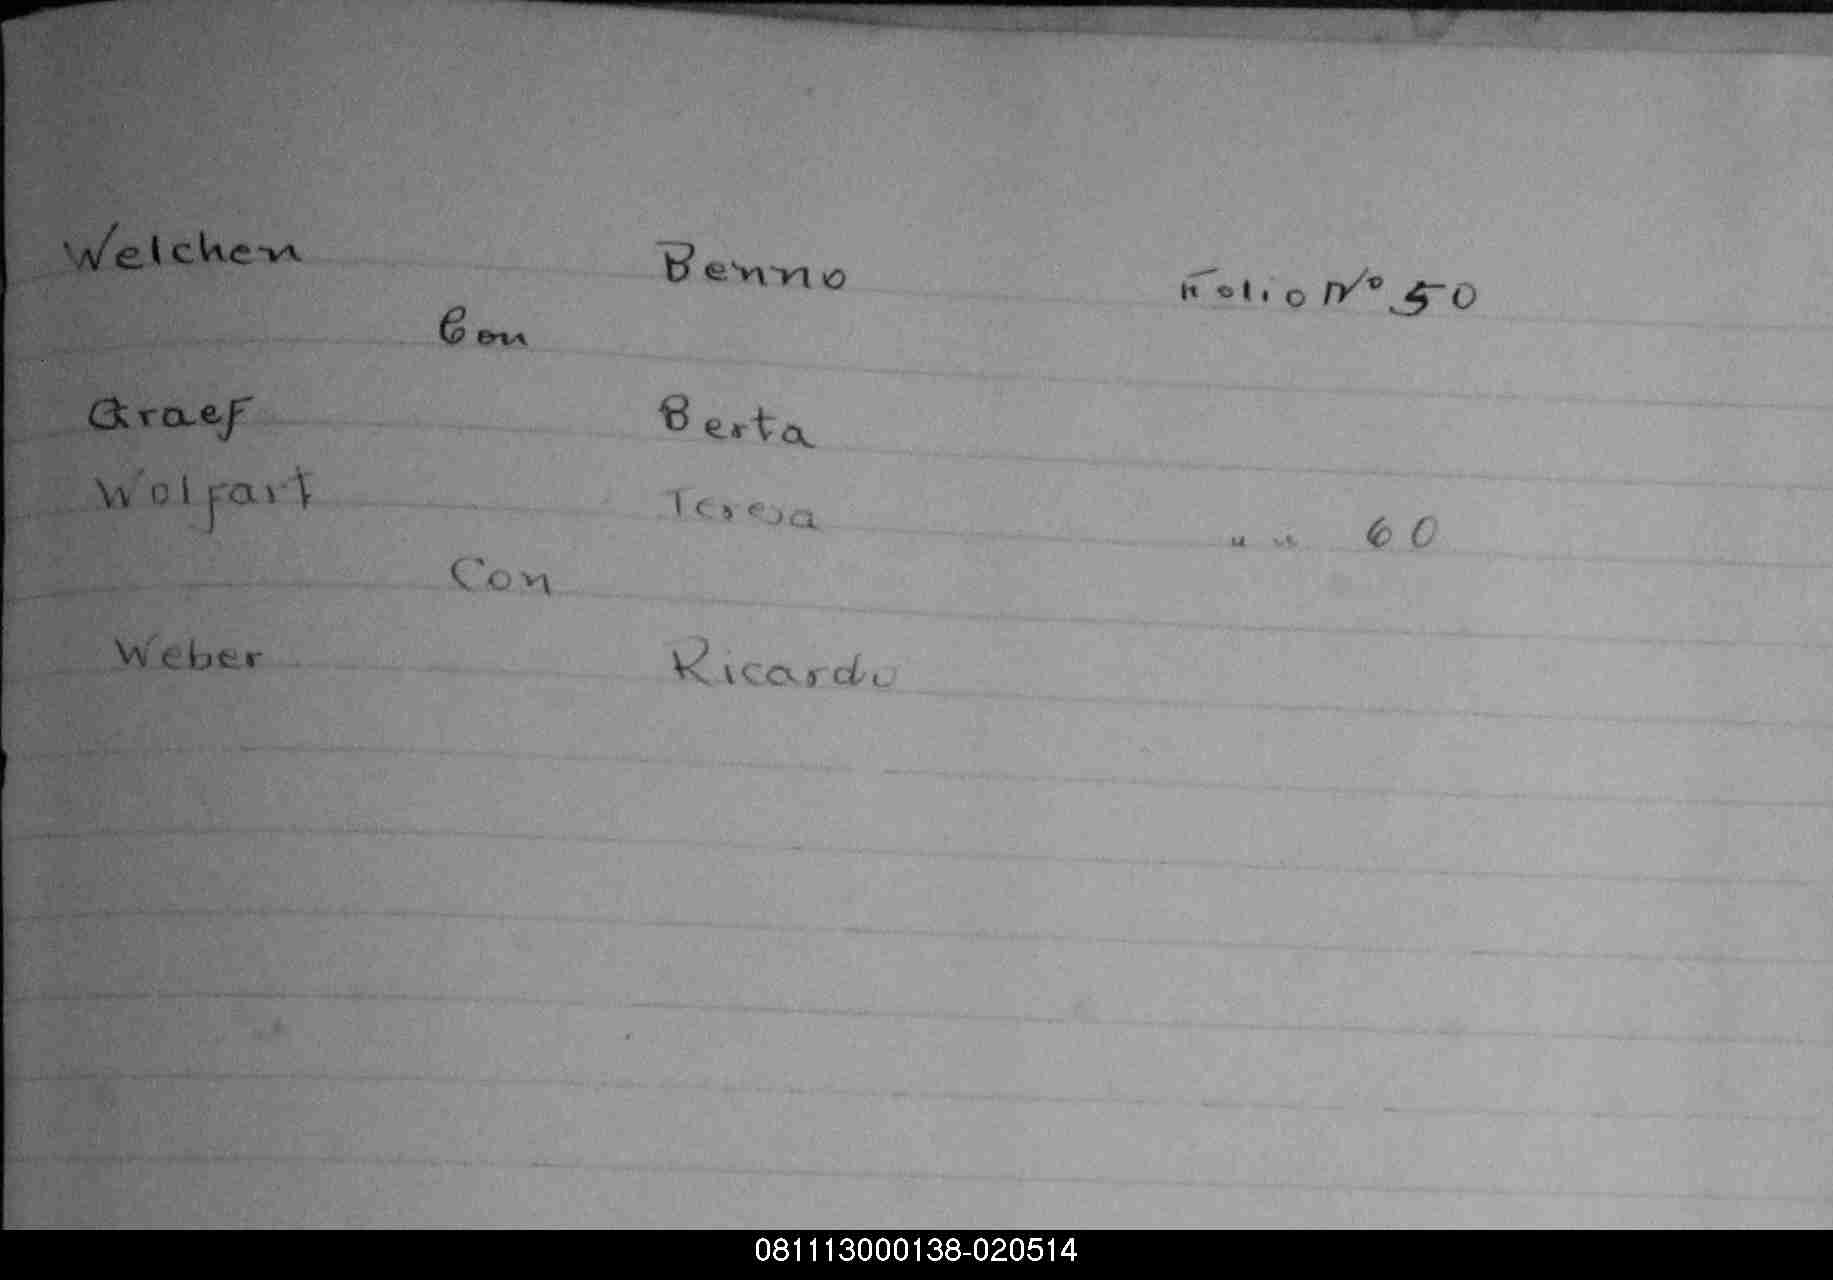 Welchen Benno Folio Nº 50
Con
Graef Berta
Wolfart Teresa " " 60
Con
Weber Ricardo
081113000138-020514